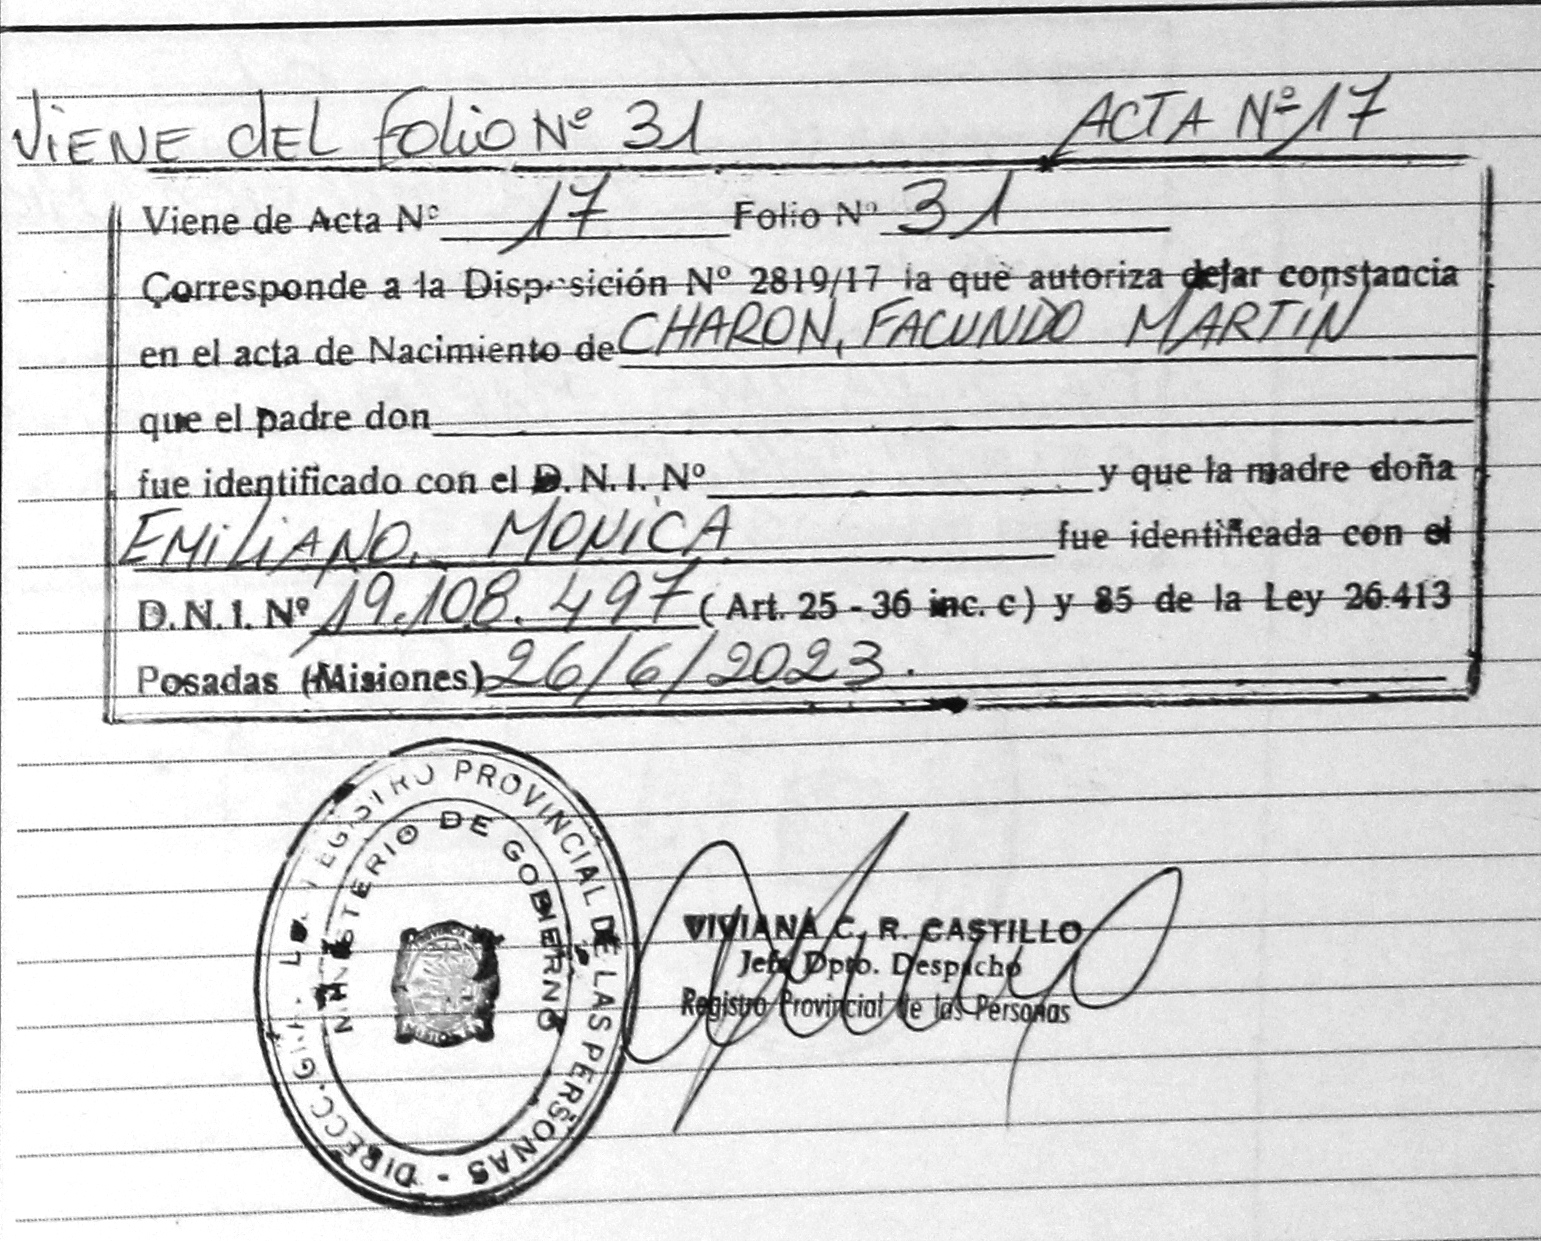 VIENE DEL FOLIO Nº 31 ACTA Nº 17
Viene de Acta Nº 17 Folio Nº 31
Corresponde a la Disposición Nº 2819/17 la que autoriza dejar constancia
en el acta de Nacimiento de CHARON, FACUNDO MARTIN
que el padre don
fue identificado con el D.N.I. Nº y que la madre doña
EMILIANO, MONICA fue identificada con el
D.N.I. Nº 19.108.497 (Art. 25 - 36 inc. c) y 85 de la Ley 26.413
Posadas (Misiones) 26/6/2023.
DIRECC. GRAL. DEL REGISTRO PROVINCIAL DE LAS PERSONAS -
MINISTERIO DE GOBIERNO
VIVIANA C. R. CASTILLO
Jefe Dpto. Despacho
Registro Provincial de las Personas